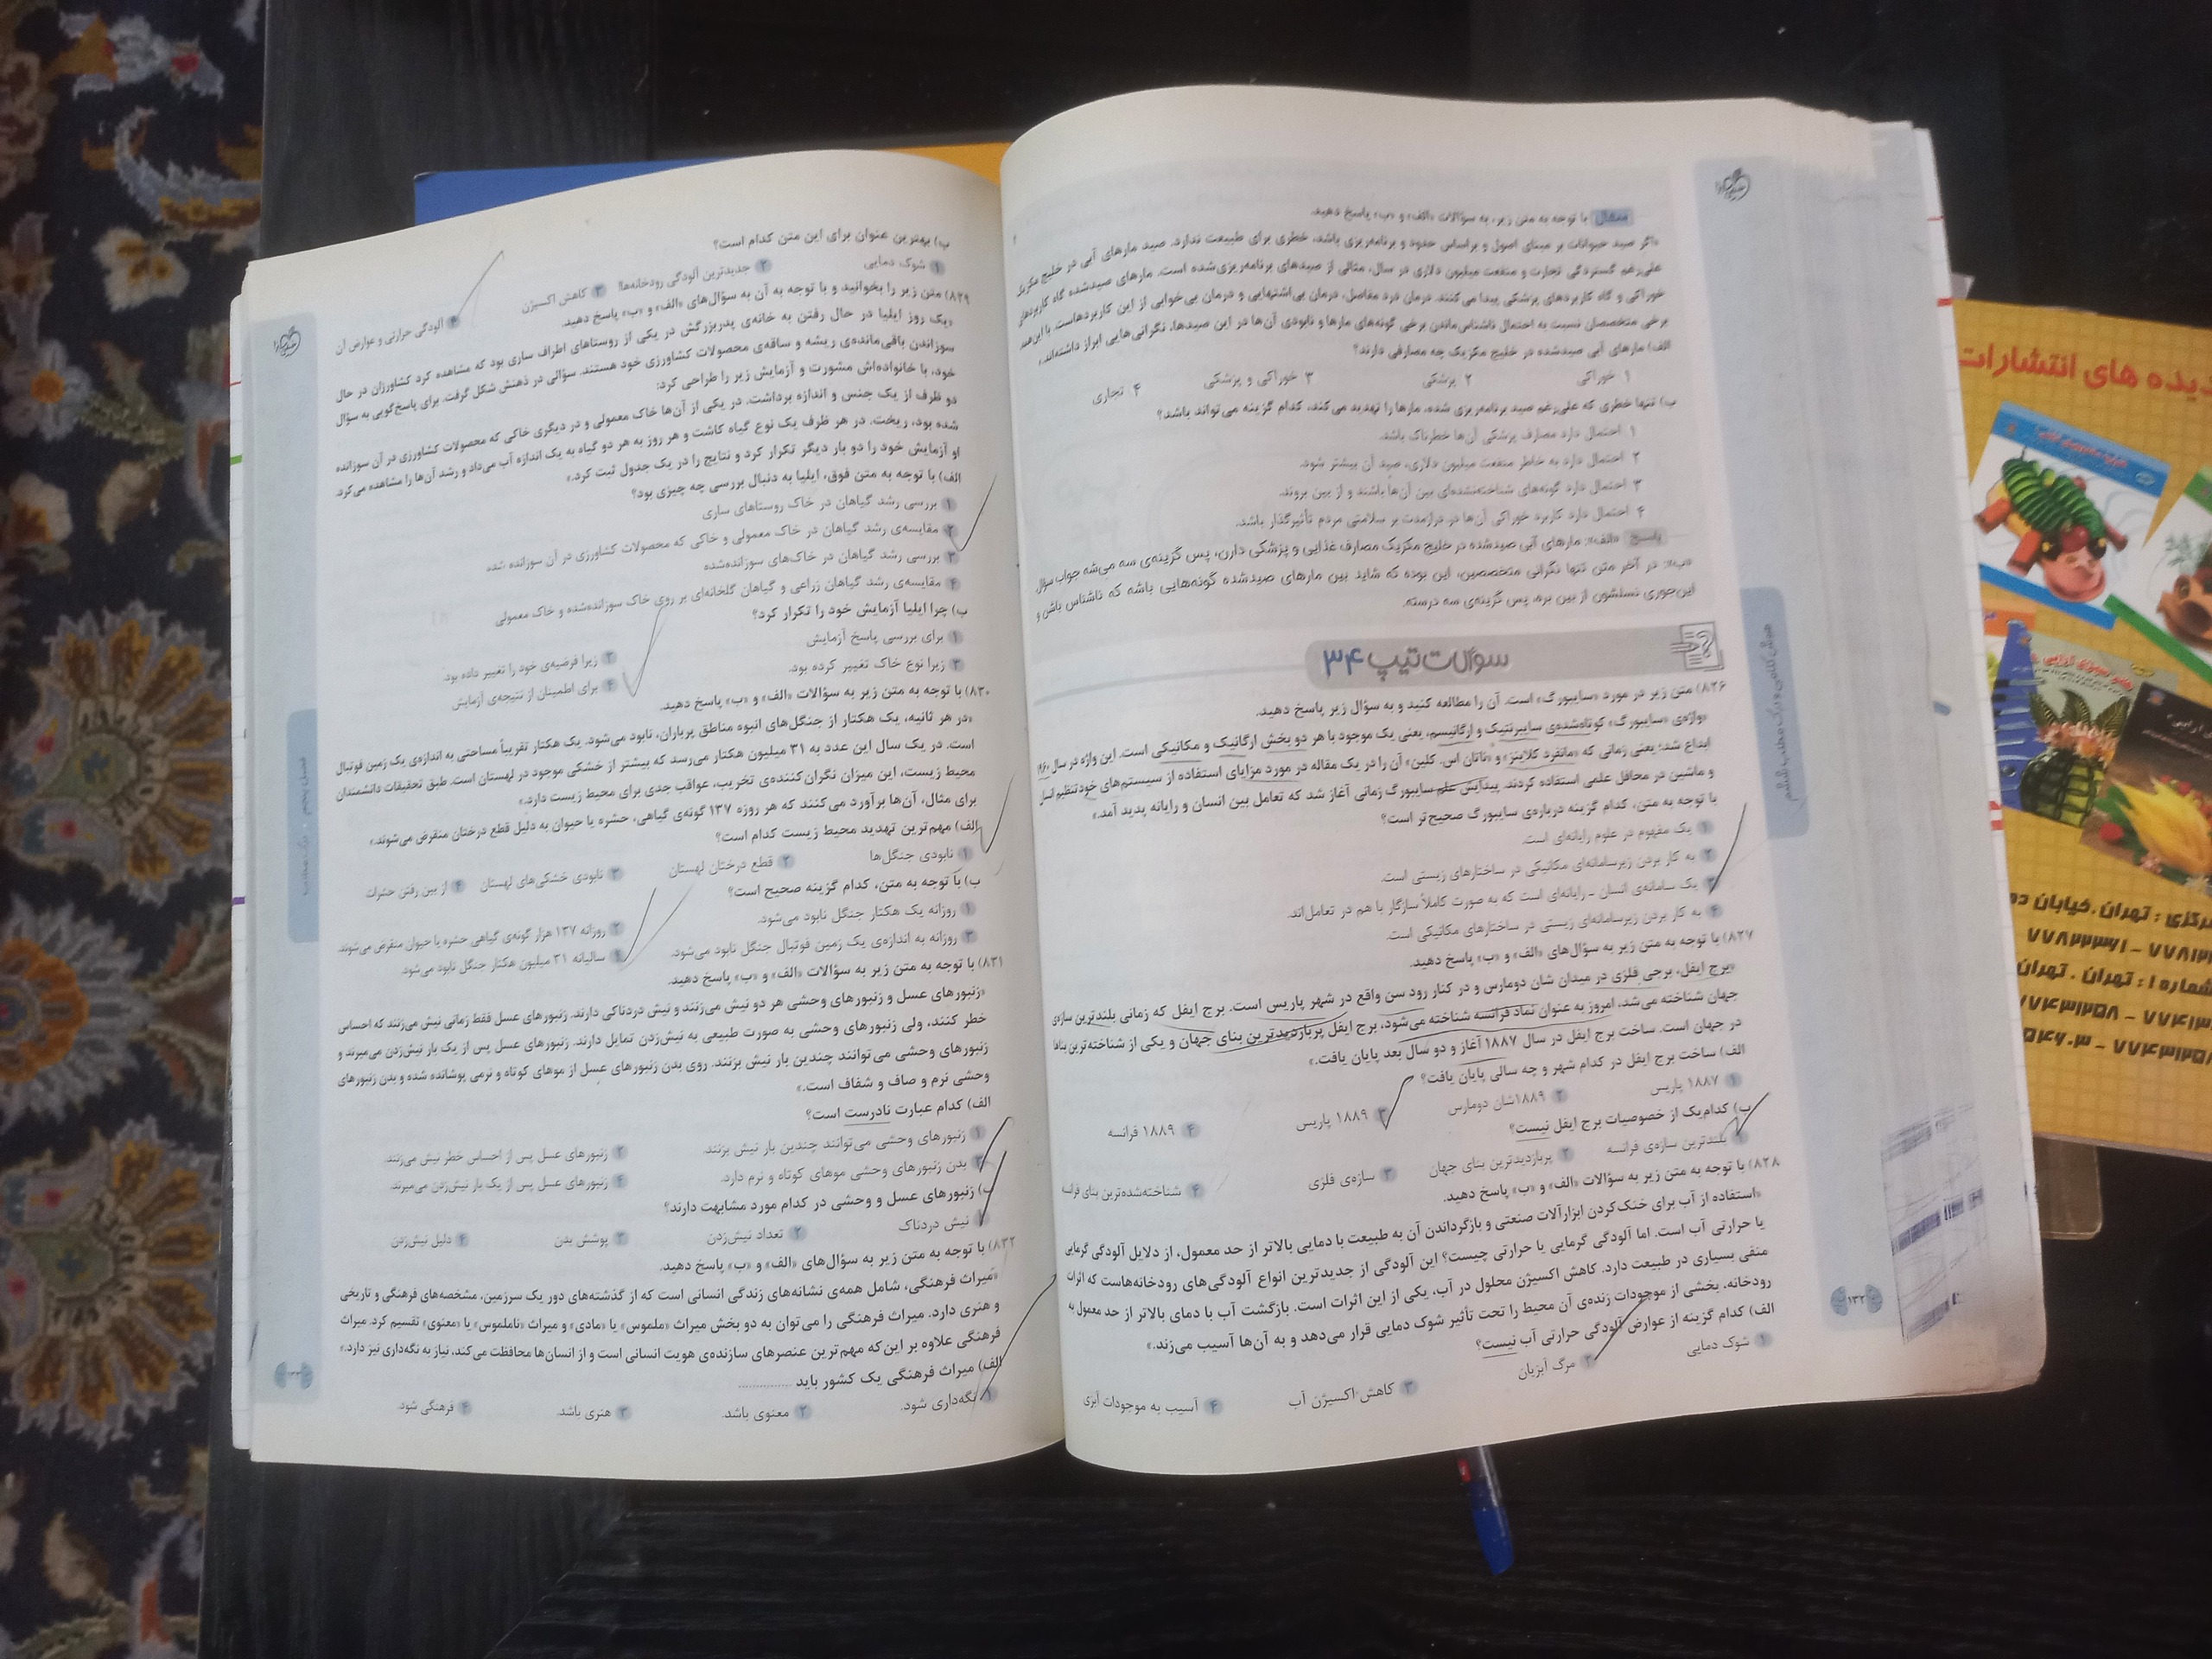 مثال با توجه به متن زیر، به سؤالات «الف» و «ب» پاسخ دهید.
«اگر صید حیوانات بر مبنای اصول و براساس حدود و برنامه‌ریزی باشد، خطری برای طبیعت ندارد. صید مارهای آبی در خلیج مکزیک
علی‌رغم گستردگی تجارت و منفعت میلیون دلاری در سال، مثالی از صیدهای برنامه‌ریزی شده است. مارهای صیدشده گاه کاربردهای
خوراکی و گاه کاربردهای پزشکی پیدا می‌کنند. درمان درد مفاصل، درمان بی‌اشتهایی و درمان بی‌خوابی از این کاربردهاست. با این همه
برخی متخصصان نسبت به احتمال ناشناس‌ماندن برخی گونه‌های مارها و نابودی آن‌ها در این صیدها، نگرانی‌هایی ابراز داشته‌اند.»
الف) مارهای آبی صیدشده در خلیج مکزیک چه مصارفی دارند؟
۱ خوراکی ۲ پزشکی ۳ خوراکی و پزشکی ۴ تجاری
ب) تنها خطری که علی‌رغم صید برنامه‌ریزی شده، مارها را تهدید می‌کند، کدام گزینه می‌تواند باشد؟
۱ احتمال دارد مصارف پزشکی آن‌ها خطرناک باشد.
۲ احتمال دارد به خاطر منفعت میلیون دلاری، صید آن بیشتر شود.
۳ احتمال دارد گونه‌های شناخته‌نشده‌ای بین آن‌ها باشند و از بین بروند.
۴ احتمال دارد کاربرد خوراکی آن‌ها در درازمدت بر سلامتی مردم تأثیرگذار باشد.
پاسخ «الف»: مارهای آبی صیدشده در خلیج مکزیک مصارف غذایی و پزشکی دارن، پس گزینه‌ی سه می‌شه جواب سؤال.
«ب»: در آخر متن تنها نگرانی متخصصین، این بوده که شاید بین مارهای صیدشده گونه‌هایی باشه که ناشناس باشن و
این‌جوری نسلشون از بین بره، پس گزینه‌ی سه درسته.
سؤالات تیپ ۳۴
۸۲۶) متن زیر در مورد «سایبورگ» است. آن را مطالعه کنید و به سؤال زیر پاسخ دهید.
«واژه‌ی «سایبورگ» کوتاه‌شده‌ی سایبرنتیک و ارگانیسم، یعنی یک موجود با هر دو بخش ارگانیک و مکانیکی است. این واژه در سال ۱۹۶۰
ابداع شد؛ یعنی زمانی که «مانفرد کلاینز» و «ناتان اس. کلین» آن را در یک مقاله در مورد مزایای استفاده از سیستم‌های خودتنظیم انسان
و ماشین در محافل علمی استفاده کردند. پیدایش علم سایبورگ زمانی آغاز شد که تعامل بین انسان و رایانه پدید آمد.»
با توجه به متن، کدام گزینه درباره‌ی سایبورگ صحیح‌تر است؟
۱ یک مفهوم در علوم رایانه‌ای است.
۲ به کار بردن زیرسامانه‌ای مکانیکی در ساختارهای زیستی است.
۳ یک سامانه‌ی انسان - رایانه‌ای است که به صورت کاملاً سازگار با هم در تعامل‌اند.
۴ به کار بردن زیرسامانه‌ای زیستی در ساختارهای مکانیکی است.
۸۲۷) با توجه به متن زیر به سؤال‌های «الف» و «ب» پاسخ دهید.
«برج ایفل، برجی فلزی در میدان شان دومارس و در کنار رود سن واقع در شهر پاریس است. برج ایفل که زمانی بلندترین سازه‌ی
جهان شناخته می‌شد، امروز به عنوان نماد فرانسه شناخته می‌شود، برج ایفل پربازدیدترین بنای جهان و یکی از شناخته‌ترین بناها
در جهان است. ساخت برج ایفل در سال ۱۸۸۷ آغاز و دو سال بعد پایان یافت.»
الف) ساخت برج ایفل در کدام شهر و چه سالی پایان یافت؟
۱ ۱۸۸۷ پاریس ۲ ۱۸۸۹شان دومارس ۳ ۱۸۸۹ پاریس ۴ ۱۸۸۹ فرانسه
ب) کدام‌یک از خصوصیات برج ایفل نیست؟
۱ بلندترین سازه‌ی فرانسه ۲ پربازدیدترین بنای جهان ۳ سازه‌ی فلزی ۴ شناخته‌شده‌ترین بنای فرانسه
۸۲۸) با توجه به متن زیر به سؤالات «الف» و «ب» پاسخ دهید.
«استفاده از آب برای خنک‌کردن ابزارآلات صنعتی و بازگرداندن آن به طبیعت با دمایی بالاتر از حد معمول، از دلایل آلودگی گرمایی
یا حرارتی آب است. اما آلودگی گرمایی یا حرارتی چیست؟ این آلودگی از جدیدترین انواع آلودگی‌های رودخانه‌هاست که اثرات
منفی بسیاری در طبیعت دارد. کاهش اکسیژن محلول در آب، یکی از این اثرات است. بازگشت آب با دمای بالاتر از حد معمول به
رودخانه، بخشی از موجودات زنده‌ی آن محیط را تحت تأثیر شوک دمایی قرار می‌دهد و به آن‌ها آسیب می‌زند.»
الف) کدام گزینه از عوارض آلودگی حرارتی آب نیست؟
۱ شوک دمایی ۲ مرگ آبزیان ۳ کاهش اکسیژن آب ۴ آسیب به موجودات آبزی
هوش کلامی و درک مطلب ششم
۱۳۲
ب) بهترین عنوان برای این متن کدام است؟
۱ شوک دمایی ۲ جدیدترین آلودگی رودخانه‌ها! ۳ کاهش اکسیژن ۴ آلودگی حرارتی و عوارض آن
۸۲۹) متن زیر را بخوانید و با توجه به آن به سؤال‌های «الف» و «ب» پاسخ دهید.
«یک روز ایلیا در حال رفتن به خانه‌ی پدربزرگش در یکی از روستاهای اطراف ساری بود که مشاهده کرد کشاورزان در حال
سوزاندن باقی‌مانده‌ی ریشه و ساقه‌ی محصولات کشاورزی خود هستند. سؤالی در ذهنش شکل گرفت. برای پاسخ‌گویی به سؤال
خود، با خانواده‌اش مشورت و آزمایش زیر را طراحی کرد:
دو ظرف از یک جنس و اندازه برداشت. در یکی از آن‌ها خاک معمولی و در دیگری خاکی که محصولات کشاورزی در آن سوزانده
شده بود، ریخت. در هر ظرف یک نوع گیاه کاشت و هر روز به هر دو گیاه به یک اندازه آب می‌داد و رشد آن‌ها را مشاهده می‌کرد.
او آزمایش خود را دو بار دیگر تکرار کرد و نتایج را در یک جدول ثبت کرد.»
الف) با توجه به متن فوق، ایلیا به دنبال بررسی چه چیزی بود؟
۱ بررسی رشد گیاهان در خاک روستاهای ساری
۲ مقایسه‌ی رشد گیاهان در خاک معمولی و خاکی که محصولات کشاورزی در آن سوزانده شده
۳ بررسی رشد گیاهان در خاک‌های سوزانده‌شده
۴ مقایسه‌ی رشد گیاهان زراعی و گیاهان گلخانه‌ای بر روی خاک سوزانده‌شده و خاک معمولی
ب) چرا ایلیا آزمایش خود را تکرار کرد؟
۱ برای بررسی پاسخ آزمایش ۲ زیرا فرضیه‌ی خود را تغییر داده بود.
۳ زیرا نوع خاک تغییر کرده بود. ۴ برای اطمینان از نتیجه‌ی آزمایش
۸۳۰) با توجه به متن زیر به سؤالات «الف» و «ب» پاسخ دهید.
«در هر ثانیه، یک هکتار از جنگل‌های انبوه مناطق پرباران، نابود می‌شود. یک هکتار تقریباً مساحتی به اندازه‌ی یک زمین فوتبال
است. در یک سال این عدد به ۳۱ میلیون هکتار می‌رسد که بیشتر از خشکی موجود در لهستان است. طبق تحقیقات دانشمندان
محیط زیست، این میزان نگران‌کننده‌ی تخریب، عواقب جدی برای محیط زیست دارد.
برای مثال، آن‌ها برآورد می‌کنند که هر روزه ۱۳۷ گونه‌ی گیاهی، حشره یا حیوان به دلیل قطع درختان منقرض می‌شوند.»
الف) مهم‌ترین تهدید محیط زیست کدام است؟
۱ نابودی جنگل‌ها ۲ قطع درختان لهستان ۳ نابودی خشکی‌های لهستان ۴ از بین رفتن حشرات
ب) با توجه به متن، کدام گزینه صحیح است؟
۱ روزانه یک هکتار جنگل نابود می‌شود. ۲ روزانه ۱۳۷ هزار گونه‌ی گیاهی حشره یا حیوان منقرض می‌شوند.
۳ روزانه به اندازه‌ی یک زمین فوتبال جنگل نابود می‌شود. ۴ سالیانه ۳۱ میلیون هکتار جنگل نابود می‌شود.
۸۳۱) با توجه به متن زیر به سؤالات «الف» و «ب» پاسخ دهید.
«زنبورهای عسل و زنبورهای وحشی هر دو نیش می‌زنند و نیش دردناکی دارند. زنبورهای عسل فقط زمانی نیش می‌زنند که احساس
خطر کنند، ولی زنبورهای وحشی به صورت طبیعی به نیش‌زدن تمایل دارند. زنبورهای عسل پس از یک بار نیش‌زدن می‌میرند و
زنبورهای وحشی می‌توانند چندین بار نیش بزنند. روی بدن زنبورهای عسل از موهای کوتاه و نرمی پوشانده شده و بدن زنبورهای
وحشی نرم و صاف و شفاف است.»
الف) کدام عبارت نادرست است؟
۱ زنبورهای وحشی می‌توانند چندین بار نیش بزنند. ۲ زنبورهای عسل پس از احساس خطر نیش می‌زنند.
۳ بدن زنبورهای وحشی موهای کوتاه و نرم دارد. ۴ زنبورهای عسل پس از یک بار نیش‌زدن می‌میرند.
ب) زنبورهای عسل و وحشی در کدام مورد مشابهت دارند؟
۱ نیش دردناک ۲ تعداد نیش‌زدن ۳ پوشش بدن ۴ دلیل نیش‌زدن
۸۳۲) با توجه به متن زیر به سؤال‌های «الف» و «ب» پاسخ دهید.
«میراث فرهنگی، شامل همه‌ی نشانه‌های زندگی انسانی است که از گذشته‌های دور یک سرزمین، مشخصه‌های فرهنگی و تاریخی
و هنری دارد. میراث فرهنگی را می‌توان به دو بخش میراث «ملموس» یا «مادی» و میراث «ناملموس» یا «معنوی» تقسیم کرد. میراث
فرهنگی علاوه بر این‌که مهم‌ترین عنصرهای سازنده‌ی هویت انسانی است و از انسان‌ها محافظت می‌کند، نیاز به نگه‌داری نیز دارد.»
الف) میراث فرهنگی یک کشور باید ..............
۱ نگه‌داری شود. ۲ معنوی باشد. ۳ هنری باشد. ۴ فرهنگی شود.
فصل پنجم
۱۳۳
دیده های انتشارات
مرکزی : تهران . خیابان
۷۷۸۲۲۳۶۱ -
شماره ۱ : تهران . تهران
۷۷۴۳۱۲۵۸ -